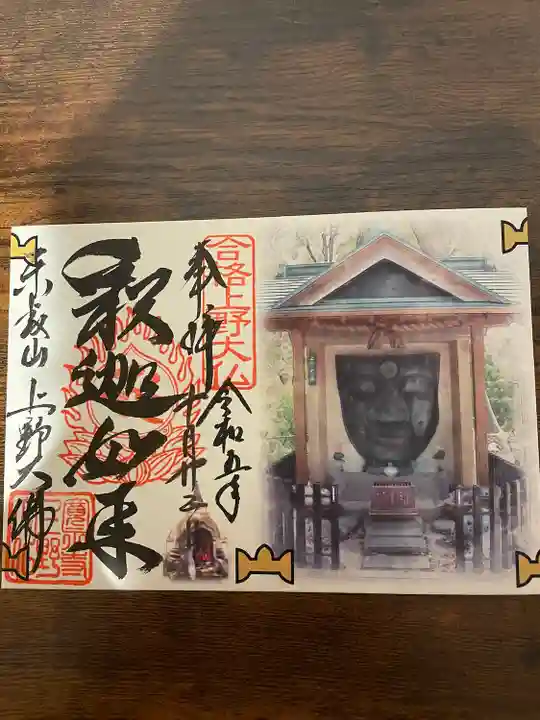 奉拝
合格上野大仏
令和五年
十月廿二日
釈迦如来
東叡山 上野大佛